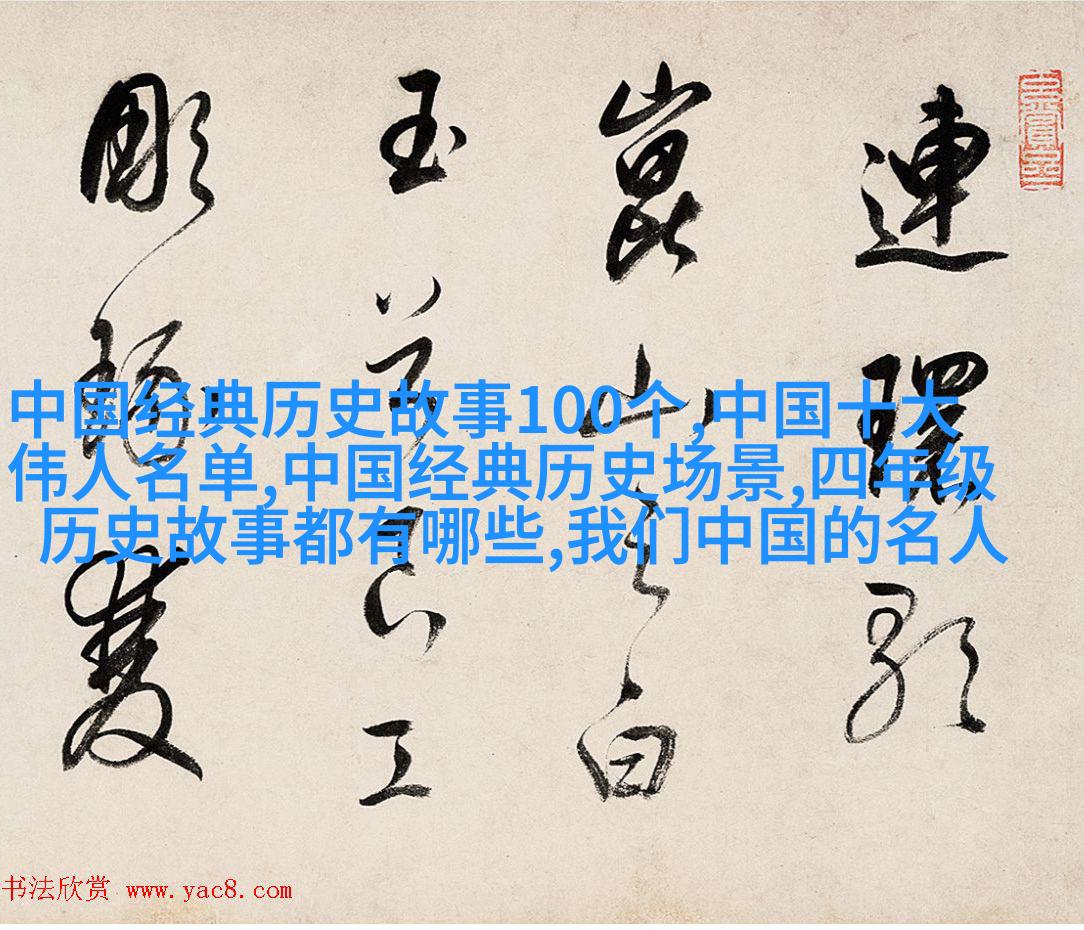 連環歌
崑山之白
玉兮良工
彫琢雙
中国经典历史故事100个,中国十大
伟人名单,中国经典历史场景,四年级
历史故事都有哪些,我们中国的名人
书法欣赏 www.yac8.com